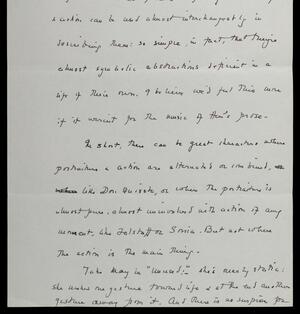 & action can be used almost interchangeably in
describing them: so simple, in fact, that they're
almost symbolic abstractions deficient in a
life of their own. I believe we'd feel this were
if it weren't for the music of prose.
In short, there can be great characters where
portraiture & action are alternated or combined,
like Don Quixote, or where the portraiture is
almost pure, almost uninvolved with action of any
moment, like Falstaff or Sonia. But not where
the action is the main thing.
Take May in "Unused;" she's nearly static:
she makes one gesture toward life & at the end another
gesture away from it. And there is no suspense for